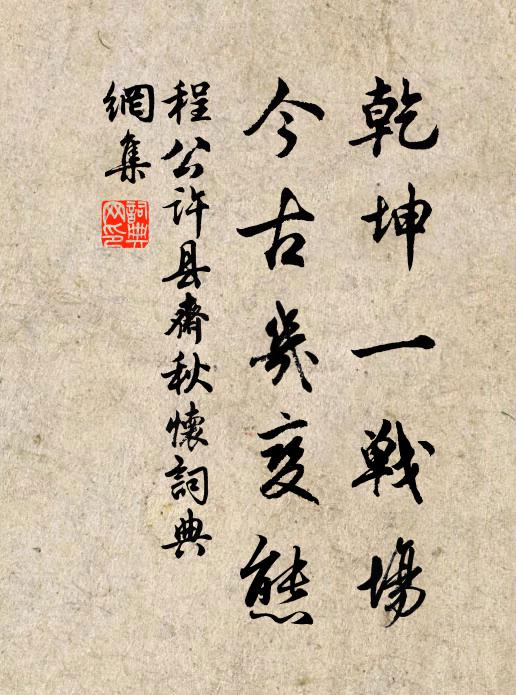 乾坤一戰場
今古幾变態
程公许县齋秋懷詞典
網集
詞典
网印